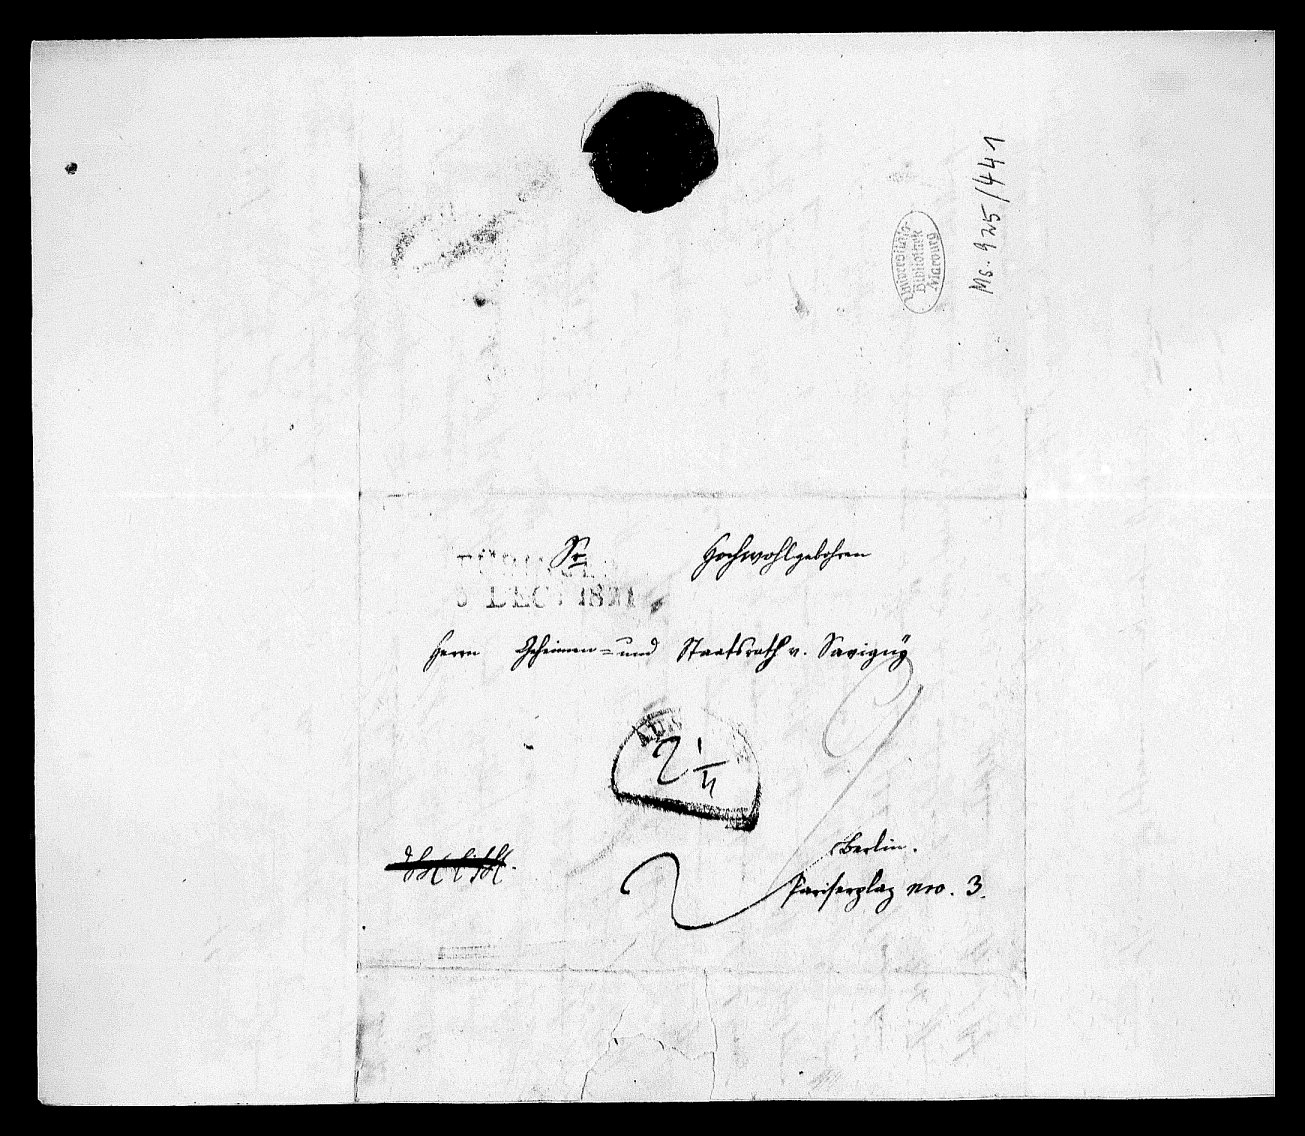 Ms. 925/441
Universitäts-
Bibliothek
Marburg
Sr Hochwohlgebohren
DEC. 1821
Herrn Geheimen- und Staatsrath v. Savigny
2 1/4
Berlin.
Pariserplaz nro. 3.